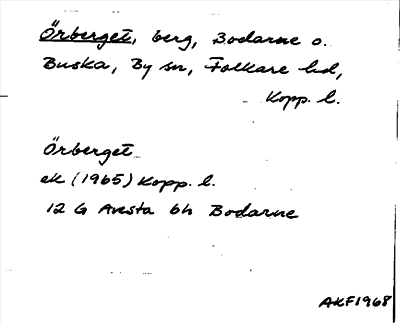 Örberget, berg, Bodarne o.
Buska, By sn, Folkare hd,
Kopp. l.
Örberget
ek (1965) Kopp. l.
12 G Avesta 6h Bodarne
AKF1968